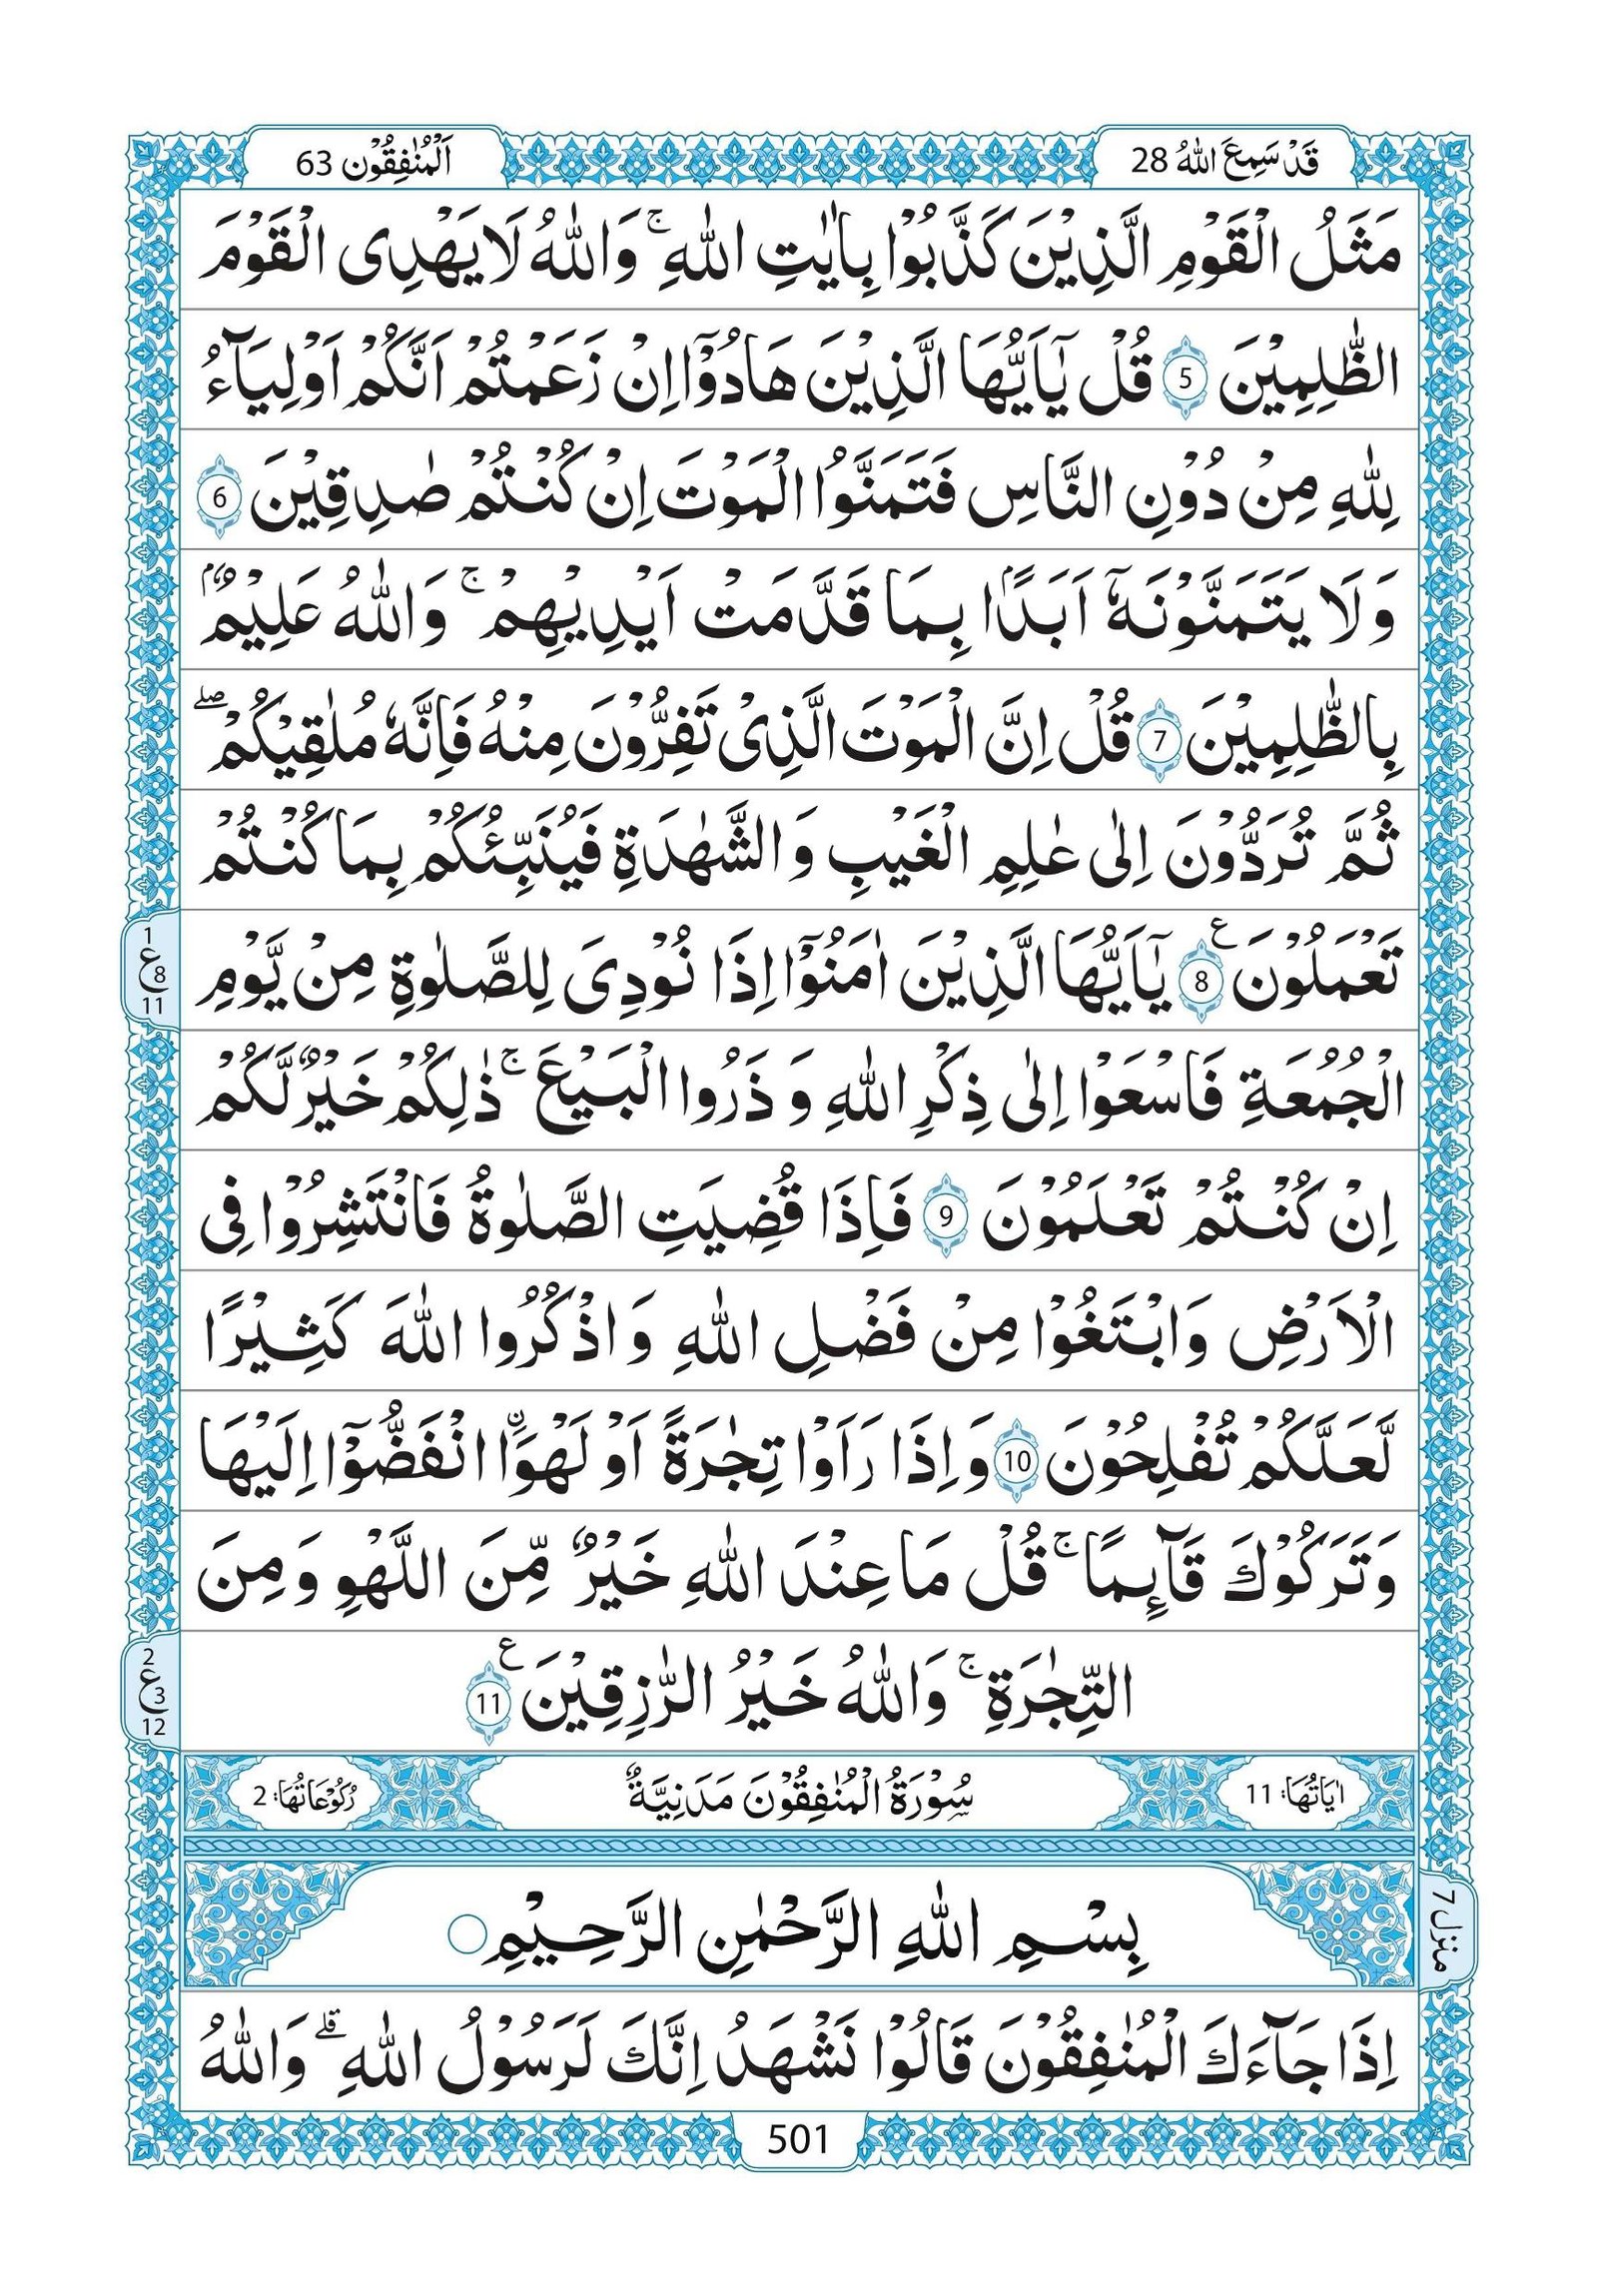 قَدْ سَمِعَ اللّٰهُ 28
اَلْمُنٰفِقُوْن 63
مَثَلُ الْقَوْمِ الَّذِيْنَ كَذَّبُوْا بِاٰيٰتِ اللّٰهِ ؕ وَاللّٰهُ لَا يَهْدِى الْقَوْمَ
الظّٰلِمِيْنَ 5 قُلْ يٰۤاَيُّهَا الَّذِيْنَ هَادُوْۤا اِنْ زَعَمْتُمْ اَنَّكُمْ اَوْلِيَآءُ
لِلّٰهِ مِنْ دُوْنِ النَّاسِ فَتَمَنَّوُا الْمَوْتَ اِنْ كُنْتُمْ صٰدِقِيْنَ 6
وَلَا يَتَمَنَّوْنَهٗۤ اَبَدًۢا بِمَا قَدَّمَتْ اَيْدِيْهِمْ ۚ وَاللّٰهُ عَلِيْمٌۢ
بِالظّٰلِمِيْنَ 7 قُلْ اِنَّ الْمَوْتَ الَّذِىْ تَفِرُّوْنَ مِنْهُ فَاِنَّهٗ مُلٰقِيْكُمْ ۖ
ثُمَّ تُرَدُّوْنَ اِلٰى عٰلِمِ الْغَيْبِ وَ الشَّهٰدَةِ فَيُنَبِّئُكُمْ بِمَا كُنْتُمْ
تَعْمَلُوْنَ ع 8 يٰۤاَيُّهَا الَّذِيْنَ اٰمَنُوْۤا اِذَا نُوْدِىَ لِلصَّلٰوةِ مِنْ يَّوْمِ
1 ع 8 11
الْجُمُعَةِ فَاسْعَوْا اِلٰى ذِكْرِ اللّٰهِ وَ ذَرُوا الْبَيْعَ ۚ ذٰلِكُمْ خَيْرٌ لَّكُمْ
اِنْ كُنْتُمْ تَعْلَمُوْنَ 9 فَاِذَا قُضِيَتِ الصَّلٰوةُ فَانْتَشِرُوْا فِى
الْاَرْضِ وَابْتَغُوْا مِنْ فَضْلِ اللّٰهِ وَ اذْكُرُوا اللّٰهَ كَثِيْرًا
لَّعَلَّكُمْ تُفْلِحُوْنَ 10 وَ اِذَا رَاَوْا تِجٰرَةً اَوْ لَهْوَا۟ انْفَضُّوْۤا اِلَيْهَا
وَتَرَكُوْكَ قَآٮِٕمًا ۚ قُلْ مَا عِنْدَ اللّٰهِ خَيْرٌ مِّنَ اللَّهْوِ وَ مِنَ
التِّجٰرَةِ ۚ وَاللّٰهُ خَيْرُ الرّٰزِقِيْنَ ع 11
2 ع 3 12
اٰيَاتُهَا: 11 سُوْرَةُ الْمُنٰفِقُوْنَ مَدَنِيَّةٌ رُكُوْعَاتُهَا: 2
بِسْمِ اللّٰهِ الرَّحْمٰنِ الرَّحِيْمِ
منزل 7
اِذَا جَآءَكَ الْمُنٰفِقُوْنَ قَالُوْا نَشْهَدُ اِنَّكَ لَرَسُوْلُ اللّٰهِ ۗ وَاللّٰهُ
501